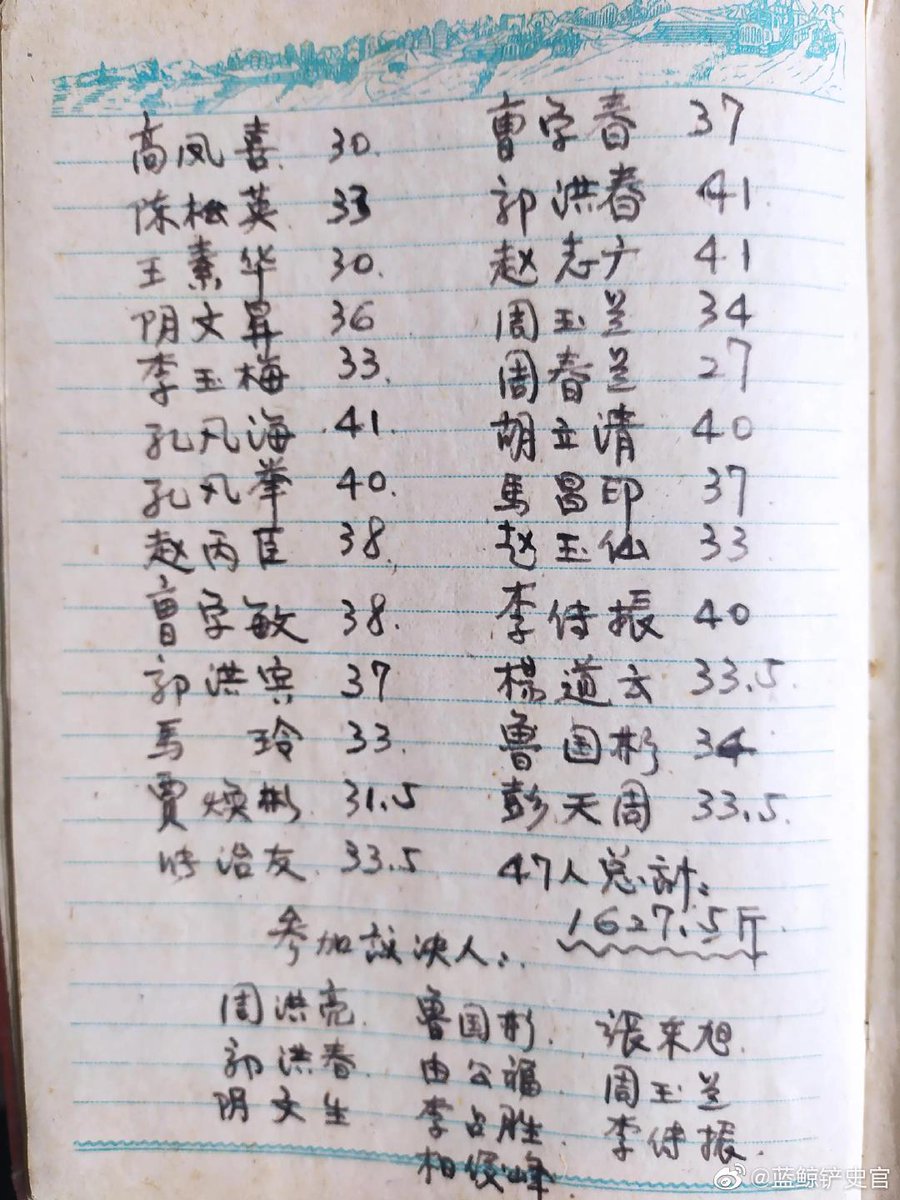 高凤喜 30. 曹学春 37
陈松英 33 郭洪春 41
王素华 30. 赵志广 41
阴文昇 36 周玉兰 34
李玉梅 33. 周春兰 27
孔凡海 41. 胡立清 40
孔凡举 40. 馬昌印 37
赵丙臣 38. 赵玉仙 33
曹学敏 38. 李传振 40
郭洪宾 37 楊道云 33.5.
馬玲 33. 魯国彬 34
賈焕彬 31.5 彭天周 33.5.
治友 33.5 47人总計:
1627.5斤
参加議决人:
周洪亮 魯国彬 張来旭.
郭洪春 由公福 周玉兰
阴文生 李占胜 李传振.
柏俊峰
@蓝鲸铲史官